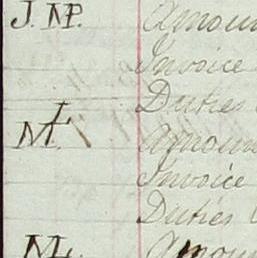 J. M.P. Amoun
Invoice
Duties
M Amoun
Invoice
Duties
M Amoun